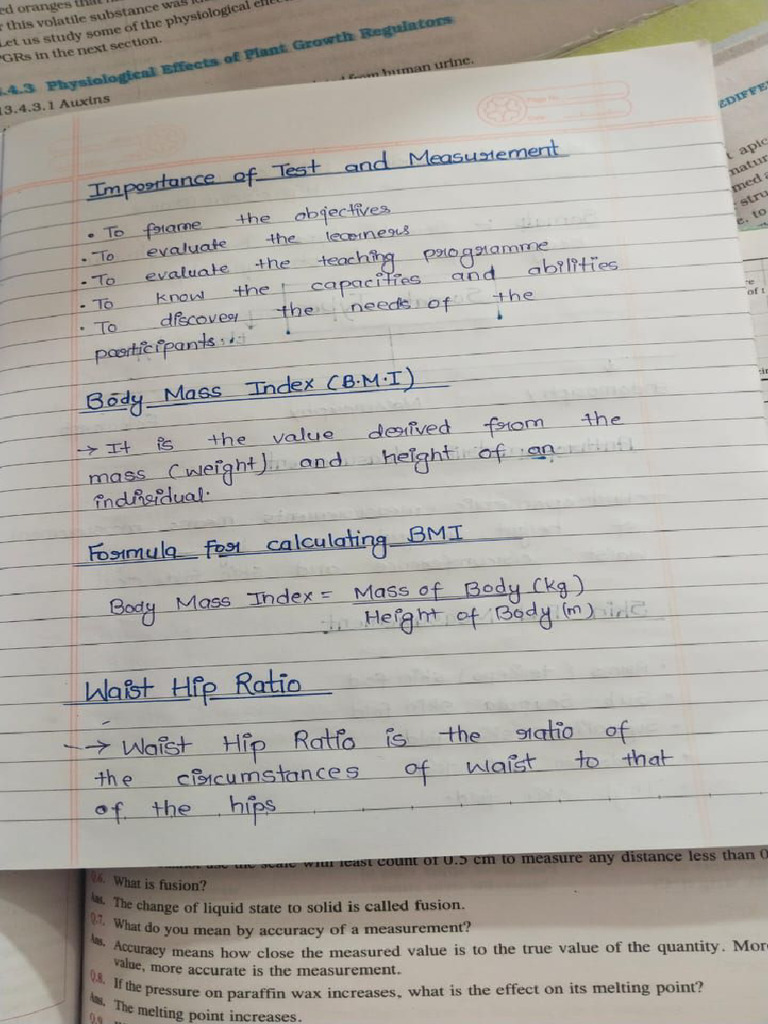 ed oranges that
this volatile substance was
Let us study some of the physiological
PGRs in the next section.
.4.3 Physiological Effects of Plant Growth Regulators
13.4.3.1 Auxins
from human urine.
Importance of Test and Measurement
• To frame the objectives
• To evaluate the learners
• To evaluate the teaching programme
• To know the capacities and abilities
• To discover the needs of the
participants..
Body Mass Index (B.M.I)
→ It is the value derived from the
mass (weight) and height of an
individual.
Formula for calculating BMI
Body Mass Index = Mass of Body (kg)
Height of Body (m)
Waist Hip Ratio
→ Waist Hip Ratio is the ratio of
the circumstances of waist to that
of the hips
use the scale with least count of 0.5 cm to measure any distance less than 0
Q.6. What is fusion?
Ans. The change of liquid state to solid is called fusion.
Q.7. What do you mean by accuracy of a measurement?
Ans. Accuracy means how close the measured value is to the true value of the quantity. More
value, more accurate is the measurement.
Q.8. If the pressure on paraffin wax increases, what is the effect on its melting point?
Ans. The melting point increases.
Q.9